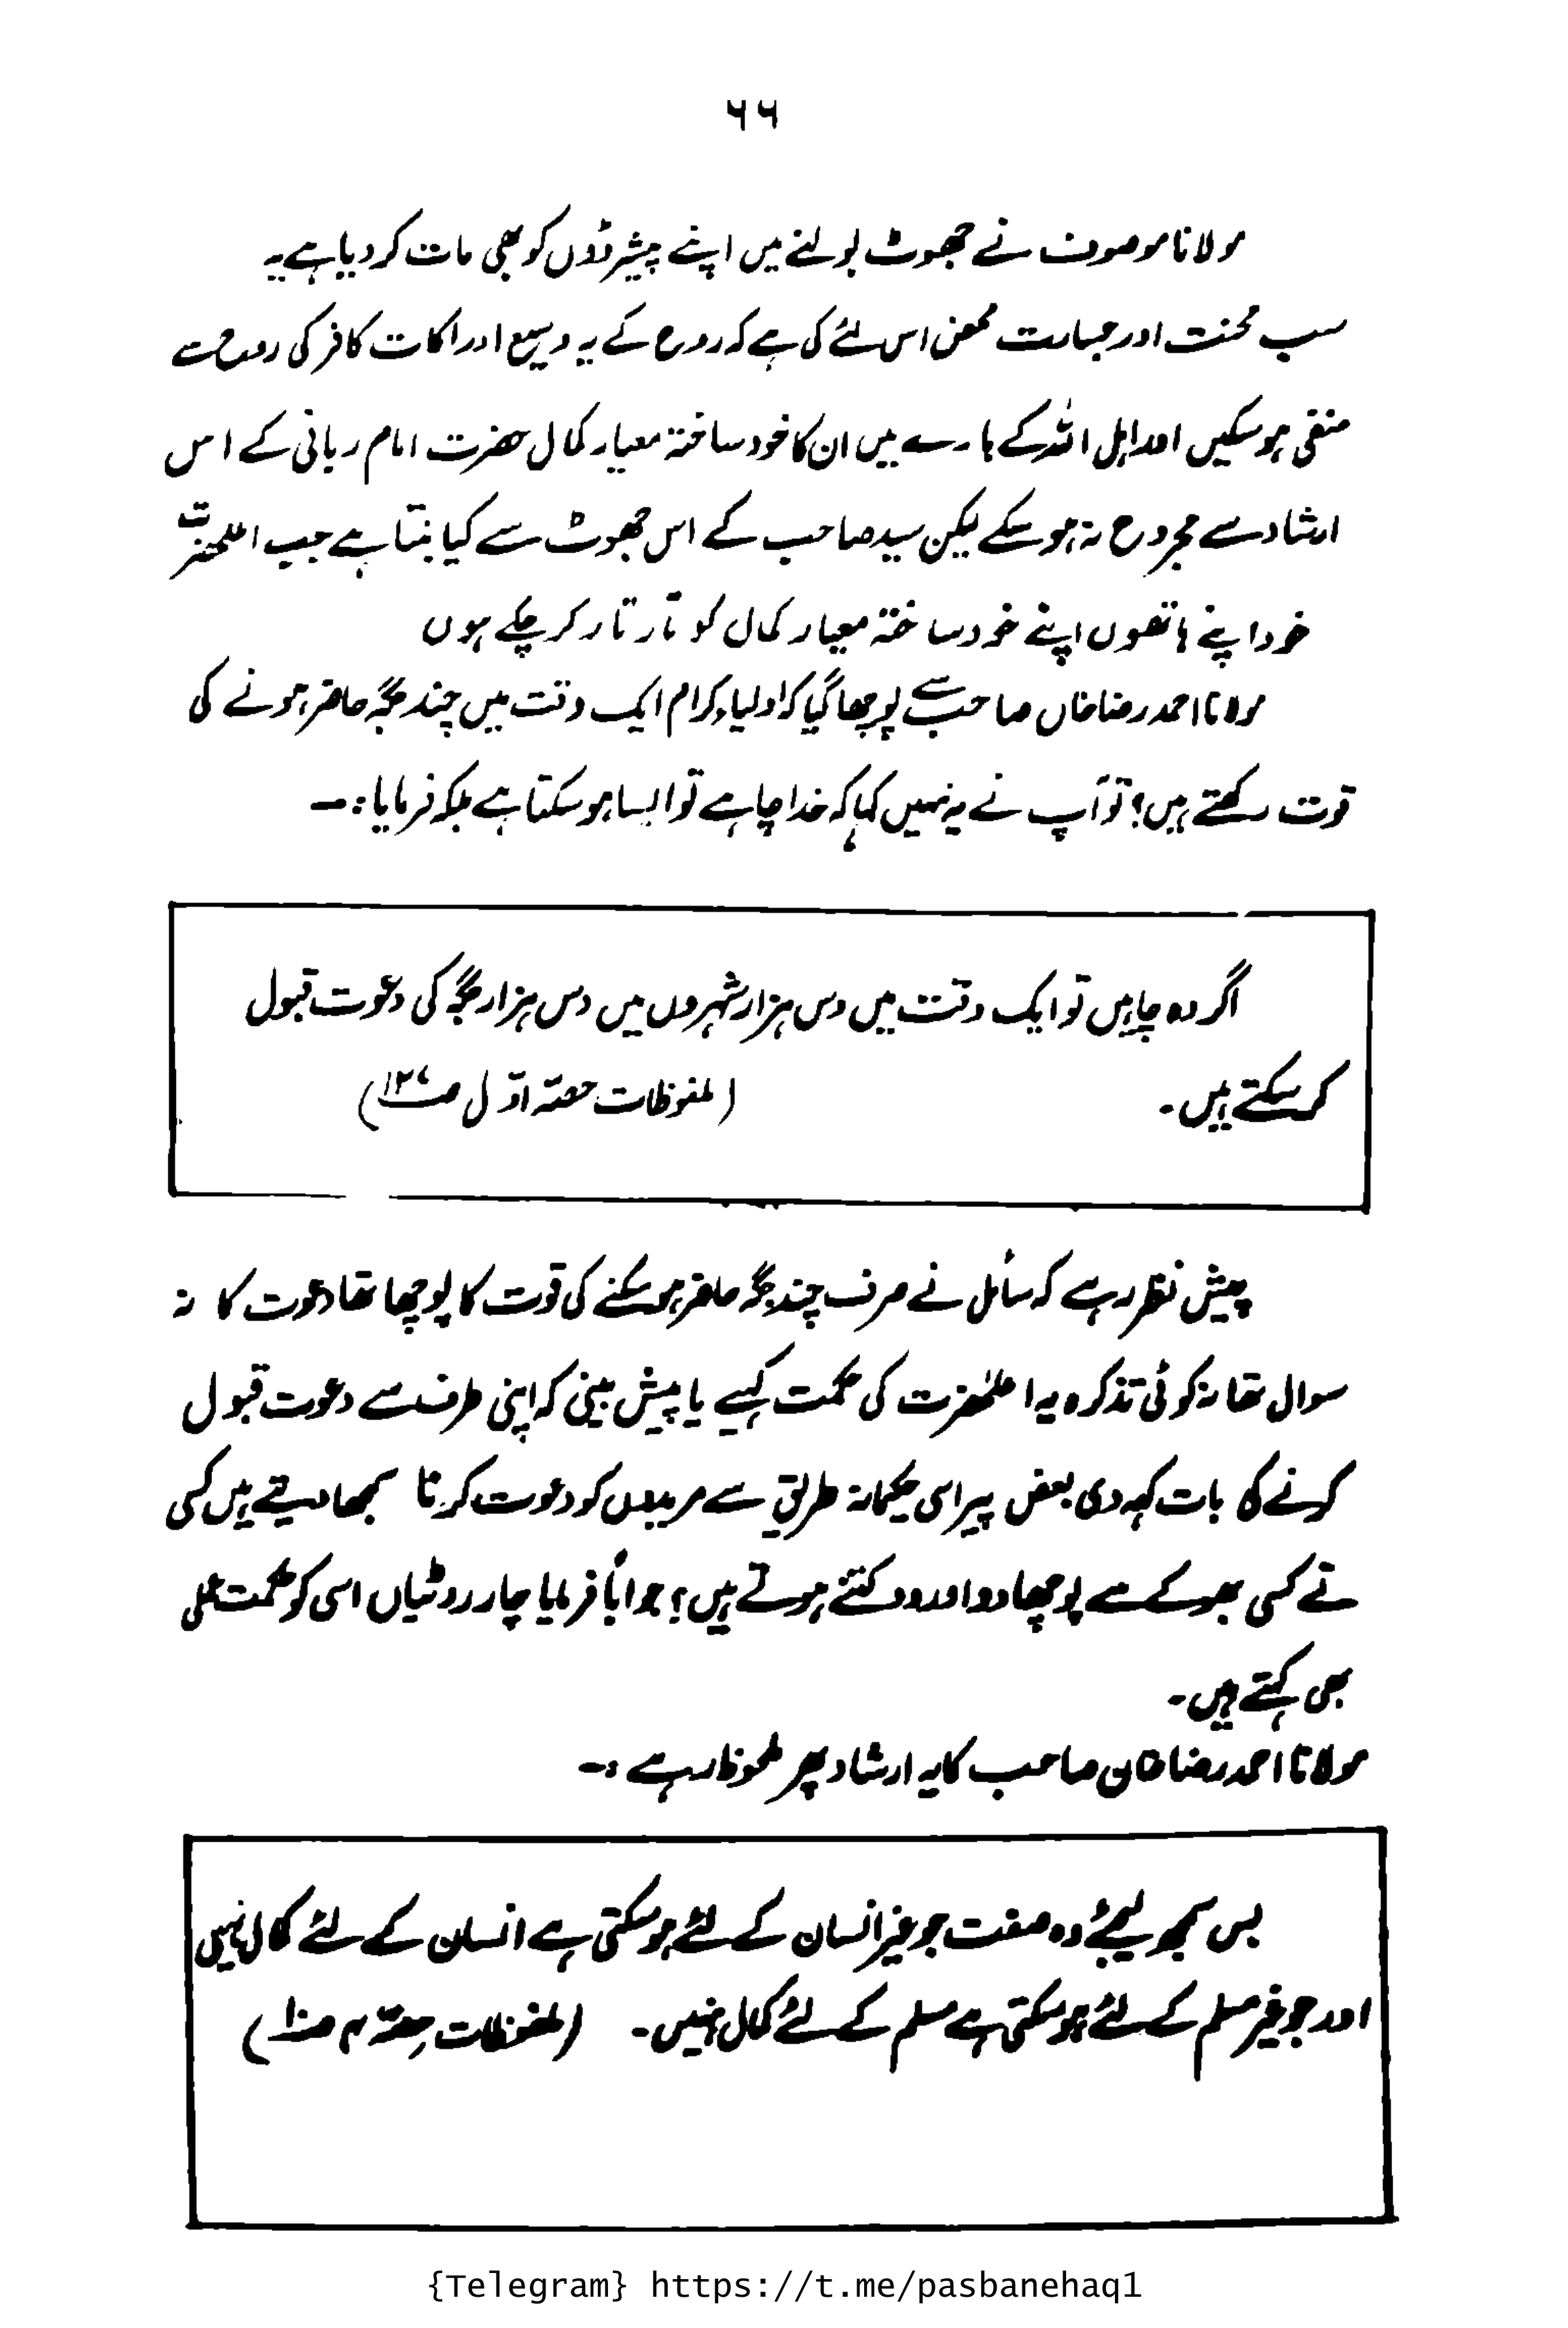 ۶۶
مولانا موصوف نے جھوٹ بولنے میں اپنے پیشرؤوں کو بھی مات کر دیا ہے یہ
سب محنت اور جسارت محض اس لئے کی ہے کہ روح کے یہ وسیع ادراکات کافر کی روح سے
منفی ہو سکیں اور اہل اللہ کے بارے میں ان کا خود ساختہ معیار کمال حضرت امام ربانی کے اس
ارشاد سے مجروح نہ ہو سکے لیکن سید صاحب کے اس جھوٹ سے کیا بنتا ہے جب اعلحضرت
خود اپنے ہاتھوں اپنے خود ساختہ معیار کمال کو تار تار کر چکے ہوں
مولانا احمد رضا خاں صاحب سے پوچھا گیا کہ اولیاء کرام ایک وقت میں چند جگہ حاضر ہونے کی
قوت رکھتے ہیں؟ تو آپ نے یہ نہیں کہا کہ خدا چاہے تو ایسا ہو سکتا ہے بلکہ فرمایا :۔
اگر وہ چاہیں تو ایک وقت میں دس ہزار شہروں میں دس ہزار جگہ کی دعوت قبول
کر سکتے ہیں۔ (ملفوظات حصہ اوّل ص۱۲۷)
پیش نظر رہے کہ سائل نے صرف چند جگہ حاضر ہو سکنے کی قوت کا پوچھا تھا دعوت کا نہ
سوال تھا نہ کوئی تذکرہ یہ اعلٰحضرت کی حکمت کہیے یا پیش بینی کہ اپنی طرف سے دعوت قبول
کرنے کی بات کہہ دی بعض پیر اسی حکیمانہ طریق سے مریدوں کو دعوت کرنا سمجھا دیتے ہیں کسی
نے کسی بھوکے سے پوچھا دو اور دو کتنے ہوتے ہیں؟ جواباً فرمایا چار روٹیاں اسی کو حکمت عملی
بھی کہتے ہیں۔
مولانا احمد رضا خان صاحب کا یہ ارشاد پھر ملحوظ رہے :۔
بس سمجھ لیجئے وہ صفت جو غیر انسان کے لئے ہو سکتی ہے انسان کے لئے کمال نہیں
اور جو غیر مسلم کے لئے ہو سکتی ہے مسلم کے لئے کمال نہیں۔ (ملفوظات حصہ ۴ ص۱۰)
{Telegram} https://t.me/pasbanehaq1